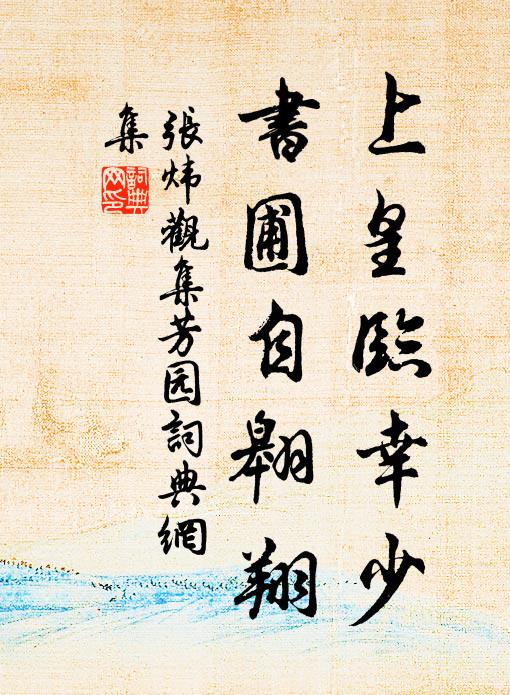 上皇臨幸少
書圃自翱翔
張炜觀集芳园詞典網
集
詞典
网印